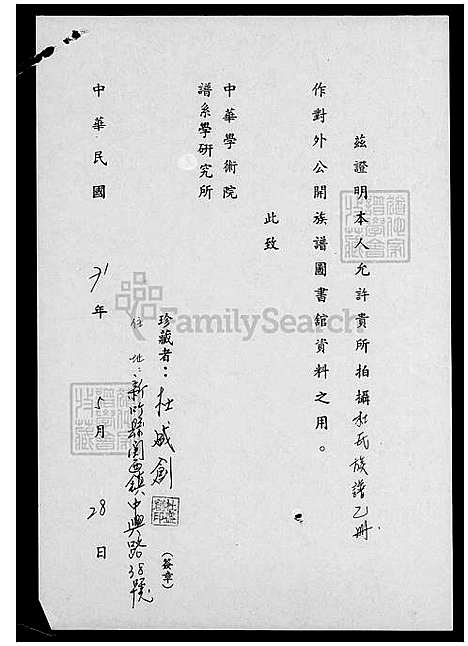 茲證明本人允許貴所拍攝杜氏族譜乙冊
作對外公開族譜圖書館資料之用。
此致
中華學術院
譜系學研究所
珍藏者：杜成創
(簽章)
住地：新竹縣關西鎮中興路38號
中華民國 71年 5月 28日
FamilySearch